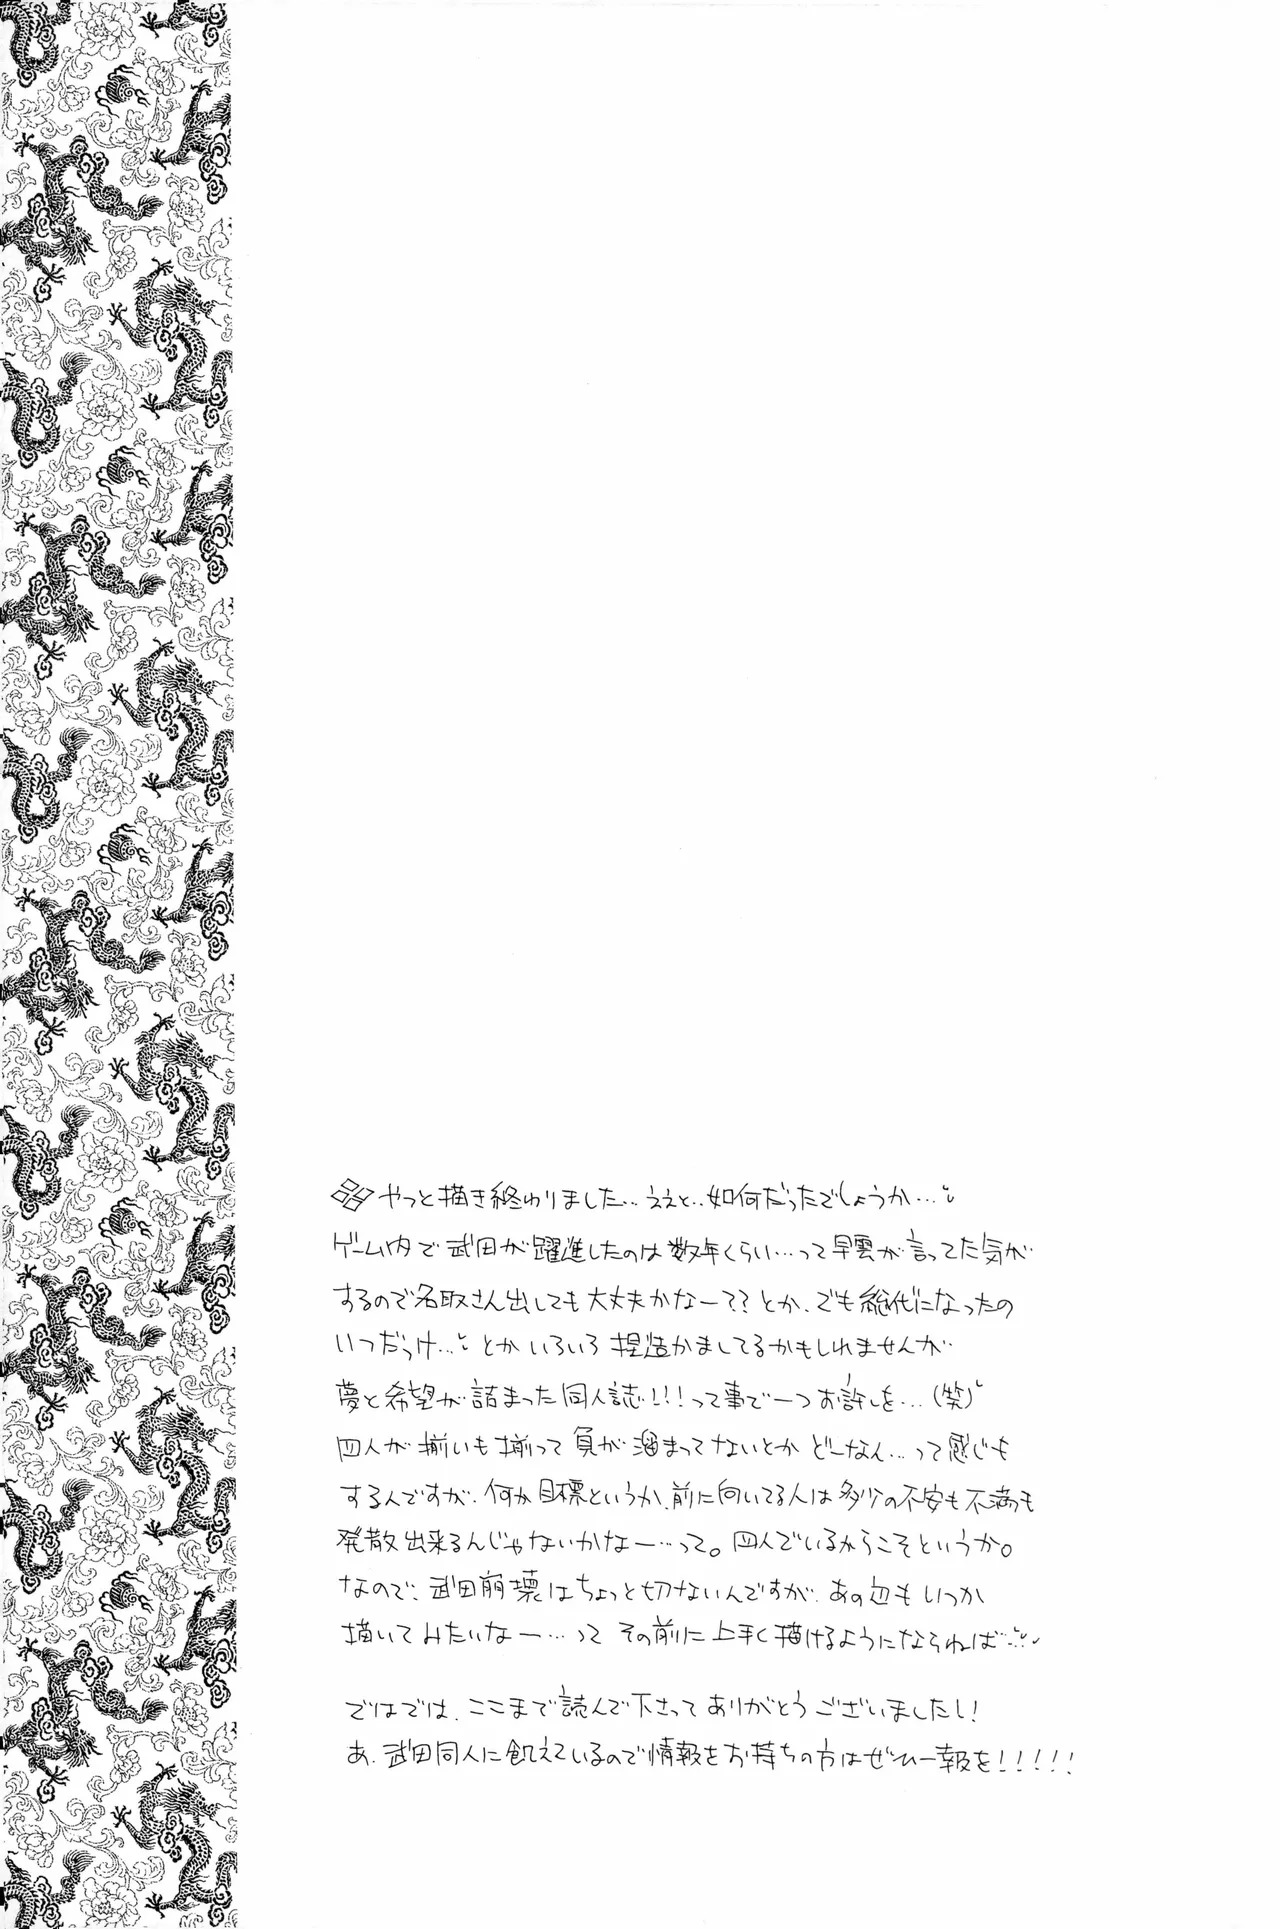 やっと描き終わりました…ええと…如何だったでしょうか…
ゲーム内で武田が躍進したのは数年くらい…って早雲が言ってた気が
するので名取さん出しても大丈夫かなー??とか、でも総代になったの
いつだっけ…とかいろいろ捏造かましてるかもしれませんが
夢と希望が詰まった同人誌!!!って事で一つお許しを…(笑)
四人が揃いも揃って負が溜まってないとかどーなん…って感じも
するんですが、何か目標というか、前に向いてる人は多少の不安も不満も
発散出来るんじゃないかなー…って。四人でいるからこそというか。
なので、武田崩壊はちょっと切ないんですが、あの辺もいつか
描いてみたいなー…って その前に上手く描けるようにならねば…
ではでは、ここまで読んで下さってありがとうございましたし!
あ、武田同人に飢えているので情報をお持ちの方はぜひ一報を!!!!!